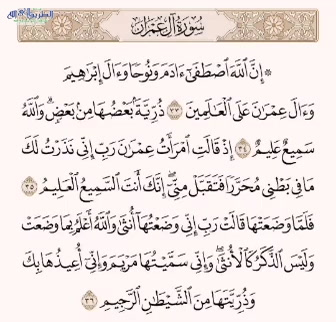 سُورَةُ آلِ عِمْرَانَ
۞ إِنَّ ٱللَّهَ ٱصْطَفَىٰٓ ءَادَمَ وَنُوحًا وَءَالَ إِبْرَٰهِيمَ
وَءَالَ عِمْرَٰنَ عَلَى ٱلْعَٰلَمِينَ ٣٣ ذُرِّيَّةًۢ بَعْضُهَا مِنۢ بَعْضٍۗ وَٱللَّهُ
سَمِيعٌ عَلِيمٌ ٣٤ إِذْ قَالَتِ ٱمْرَأَتُ عِمْرَٰنَ رَبِّ إِنِّي نَذَرْتُ لَكَ
مَا فِي بَطْنِي مُحَرَّرًا فَتَقَبَّلْ مِنِّيٓۖ إِنَّكَ أَنتَ ٱلسَّمِيعُ ٱلْعَلِيمُ ٣٥
فَلَمَّا وَضَعَتْهَا قَالَتْ رَبِّ إِنِّي وَضَعْتُهَآ أُنثَىٰ وَٱللَّهُ أَعْلَمُ بِمَا وَضَعَتْ
وَلَيْسَ ٱلذَّكَرُ كَٱلْأُنثَىٰۖ وَإِنِّي سَمَّيْتُهَا مَرْيَمَ وَإِنِّيٓ أُعِيذُهَا بِكَ
وَذُرِّيَّتَهَا مِنَ ٱلشَّيْطَٰنِ ٱلرَّجِيمِ ٣٦